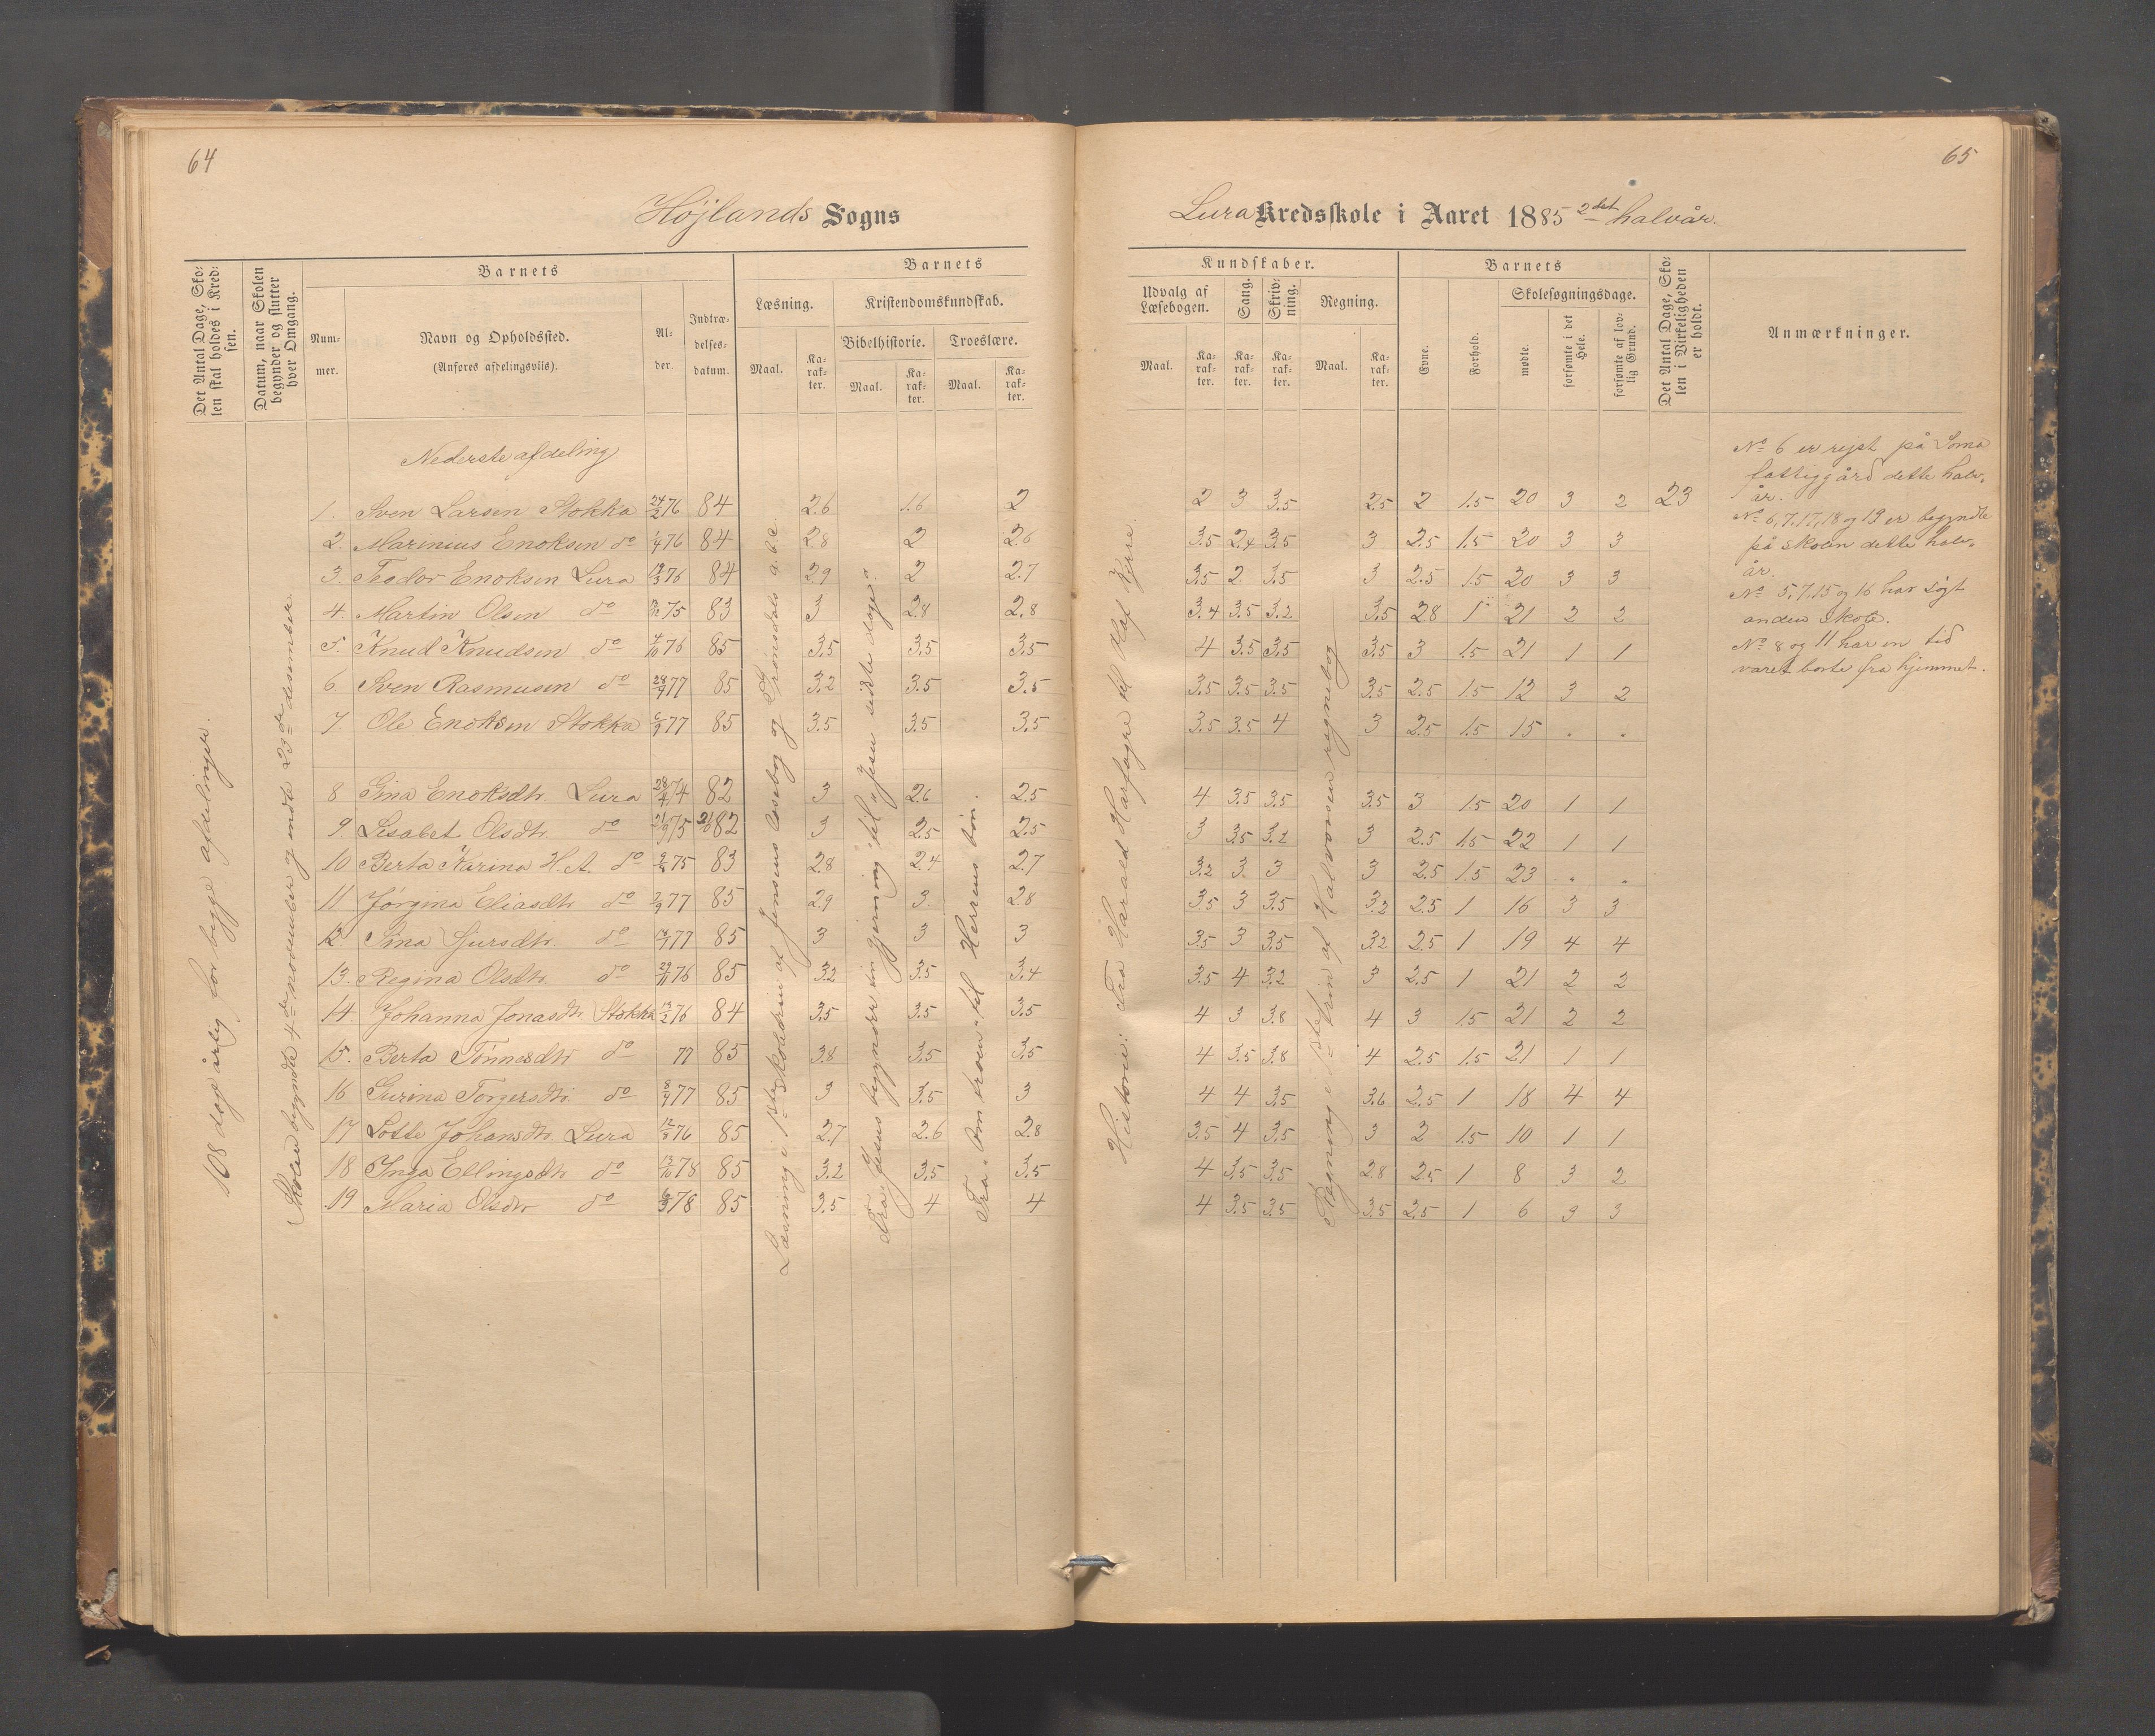 64
Højlands Sogns
Det Antal Dage, Sko-
len skal holdes i Kred-
sen.
Datum, naar Skolen
begynder og slutter
hver Omgang.
Barnets
Num-
mer.
Navn og Opholdssted.
(Anføres afdelingsviis).
Al-
der.
Indtræ-
delses-
datum.
Barnets
Læsning.
Kristendomskundskab.
Bibelhistorie.
Troeslære.
Maal.
Ka-
rak-
ter.
Maal.
Ka-
rak-
ter.
Maal.
Ka-
rak-
ter.
108 dag årlig for begge afdelinger.
Skolen begyndte 4de november og endte 23de desember.
Læsning i 1ste skoledrin af Jensens læsebog og a.b.c.
Fra "Jesus begynder sin gjerning" til "Jesu sidste dage."
Fra "Om troen" til Herrens bøn.
Nederste afdeling
1. Sven Larsen Stokka 24/2 76 84 2.6 1.6 2
2. Marinius Enoksen do 76 84 2.8 2 2.6
3. Teodor Enoksen Lura 76 84 2.9 2 2.7
4. Martin Olsen do 75 83 3 2.8 2.8
5. Knud Knudsen do 76 85 3.5 3.5 3.5
6. Sven Rasmusen do 77 85 3.2 3.5 3.5
7. Ole Enoksen Stokka 77 85 3.5 3.5 3.5
8 Gina Enoksdtr. Lura 74 82 3 2.6 2.5
9 Lisabet Olsdtr. do 75 82 3 2.5 2.5
10 Berta Karina H. A. do 75 83 2.8 2.4 2.7
11. Jørgina Eliasdtr do 77 85 2.9 3. 2.8
12. Sina Sjursdtr. do 77 85 3 3 3
13. Regina Olsdtr. do 76 85 3.2 3.5 3.4
14 Johanna Jonasdtr. Stokka 76 84 3.5 3.5 3.5
15. Berta Tønnesdtr do 77 85 3.8 3.5 3.5
16 Gurina Torgersdtr. do 77 85 3 3.5 3
17 Lotte Johansdtr. Lura 76 85 2.7 2.6 2.8
18 Inga Ellingsdtr do 78 85 3.2 3.5 3.5
19 Maria Olsdtr do 78 85 3.5 4 4
65
Lura Kredsskole i Aaret 1885 2det halvår.
Kundskaber.
Udvalg af
Læsebogen.
Sang.
Skriv-
ning.
Regning.
Maal.
Ka-
rak-
ter.
Ka-
rak-
ter.
Ka-
rak-
ter.
Maal.
Ka-
rak-
ter.
Barnets
Evne.
Forhold.
Skolesøgningsdage.
mødte.
forsømte i det
Hele.
forsømte af lov-
lig Grund.
Det Antal Dage, Sko-
len i Virkeligheden
er holdt.
Anmærkninger.
Historie: Fra Harald Harfagre til Olaf Kyrre.
Regning i 1ste trin af Halvorsens regnebog
2 3 3.5 2.5 2 1.5 20 3 2 23
3.5 2.4 3.5 3 2.5 1.5 20 3 3
3.5 2 3.5 3 2.5 1.5 20 3 3
3.4 3.5 3.2 3.5 2.8 1 21 2 2
4 3.5 3.5 3.5 3 1.5 21 1 1
3.5 3.5 3.5 3.5 2.5 1.5 12 3 2
3.5 3.5 4 3 2.5 1.5 15 . .
4 3.5 3.5 3.5 3 1.5 20 1 1
3 3.5 3.2 3 2.5 1.5 22 1 1
3.2 3. 3 3 2.5 1.5 23 . .
3.5 3 3.5 3.2 2.5 1 16 3 3
3.5 3 3.5 3.2 2.5 1 19 4 4
3.5 4 3.2 3 2.5 1 21 2 2
4 3 3.8 4 3 1.5 21 2 2
4 3.5 3.8 4 2.5 1.5 21 1 1
4 4 3.5 3.6 2.5 1 18 4 4
3.5 4 3.5 3 2 1.5 10 1 1
4 3.5 3.5 2.8 2.5 1 8 3 2
4 3.5 3.5 3.5 2.5 1 6 3 3
No 6 er rejst på Soma
fattiggård dette halv-
år.
No 6, 7, 17, 18 og 19 er begyndte
på skolen dette halv-
år.
No 5, 7, 15 og 16 har søgt
anden skole.
No 8 og 11 har en tid
været borte fra hjemmet.